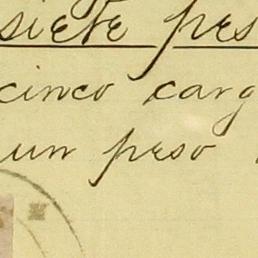 siete pes
cinco carg
un peso